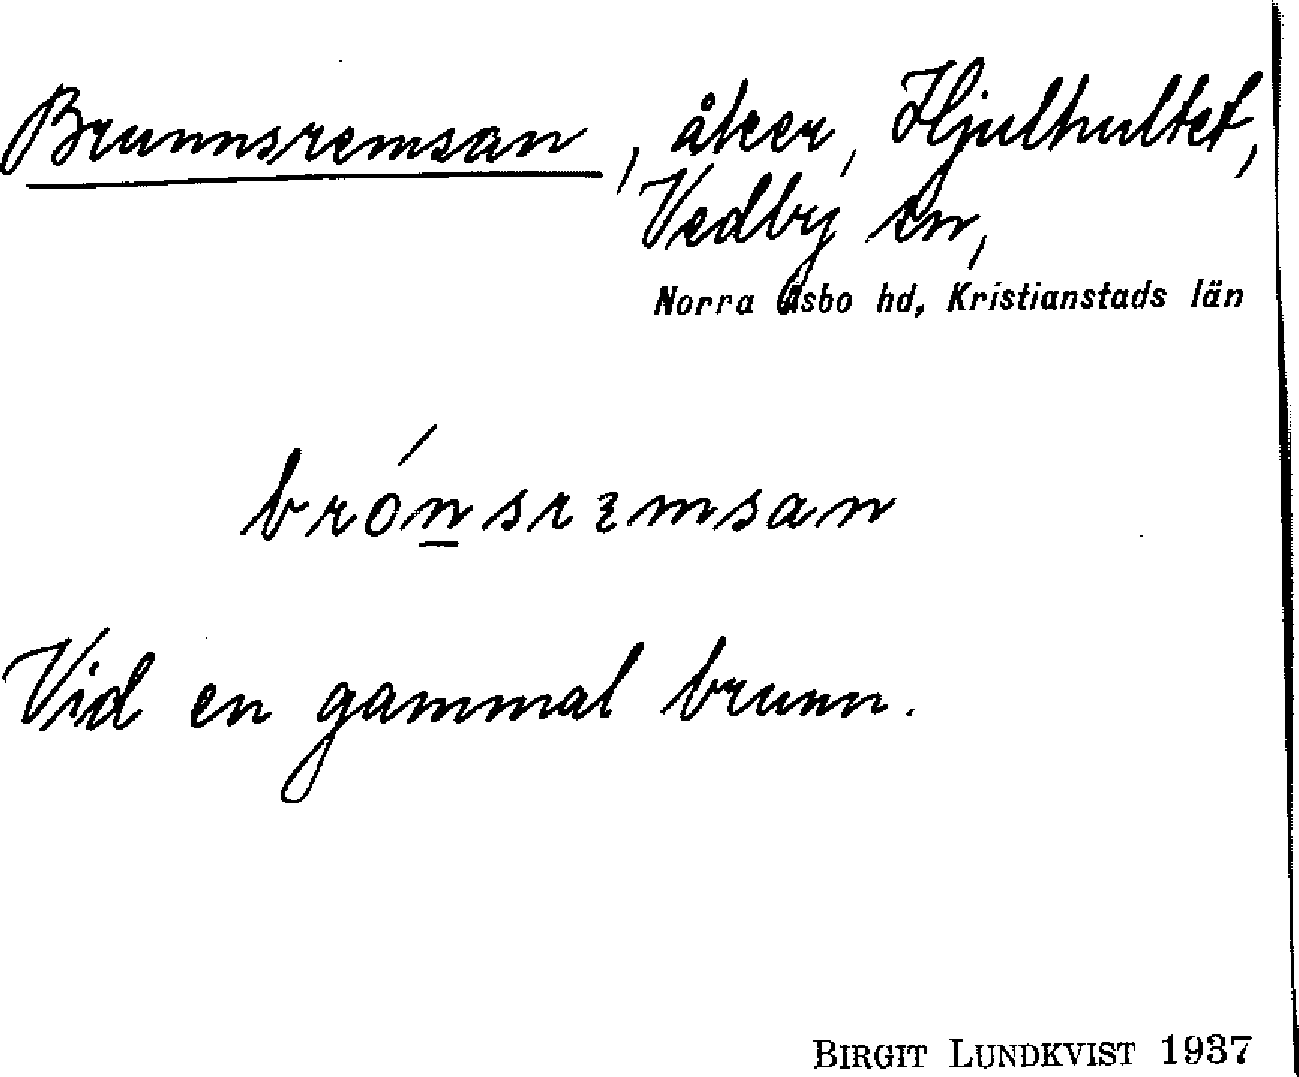 Brunnsremsan, åker, Hjulhultet,
Vedby sn,
Norra Åsbo hd, Kristianstads län
brónsrɛmsan
Vid en gammal brunn.
BIRGIT LUNDKVIST 1937